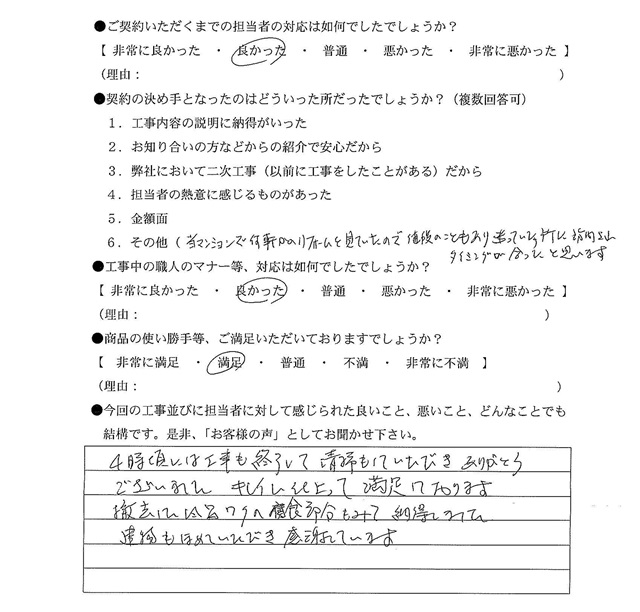 ●ご契約いただくまでの担当者の対応は如何でしたでしょうか？
【 非常に良かった ・ 良かった ・ 普通 ・ 悪かった ・ 非常に悪かった 】
（理由： ）
●契約の決め手となったのはどういった所だったでしょうか？（複数回答可）
１．工事内容の説明に納得がいった
２．お知り合いの方などからの紹介で安心だから
３．弊社において二次工事（以前に工事をしたことがある）だから
４．担当者の熱意に感じるものがあった
５．金額面
６．その他（ 当マンションで何軒かのリフォームを見ていたので 値段のこともあり迷っている所に訪問され
タイミングが合ったと思います
●工事中の職人のマナー等、対応は如何でしたでしょうか？
【 非常に良かった ・ 良かった ・ 普通 ・ 悪かった ・ 非常に悪かった 】
（理由： ）
●商品の使い勝手等、ご満足いただいておりますでしょうか？
【 非常に満足 ・ 満足 ・ 普通 ・ 不満 ・ 非常に不満 】
（理由： ）
●今回の工事並びに担当者に対して感じられた良いこと、悪いこと、どんなことでも
結構です。是非、「お客様の声」としてお聞かせ下さい。
4時頃には工事も終了して 清掃もしていただき ありがとう
ございました キレイに仕上って 満足しております
撤去した 腐食部分もみて 納得しました
建物もほめていただき 感謝しています